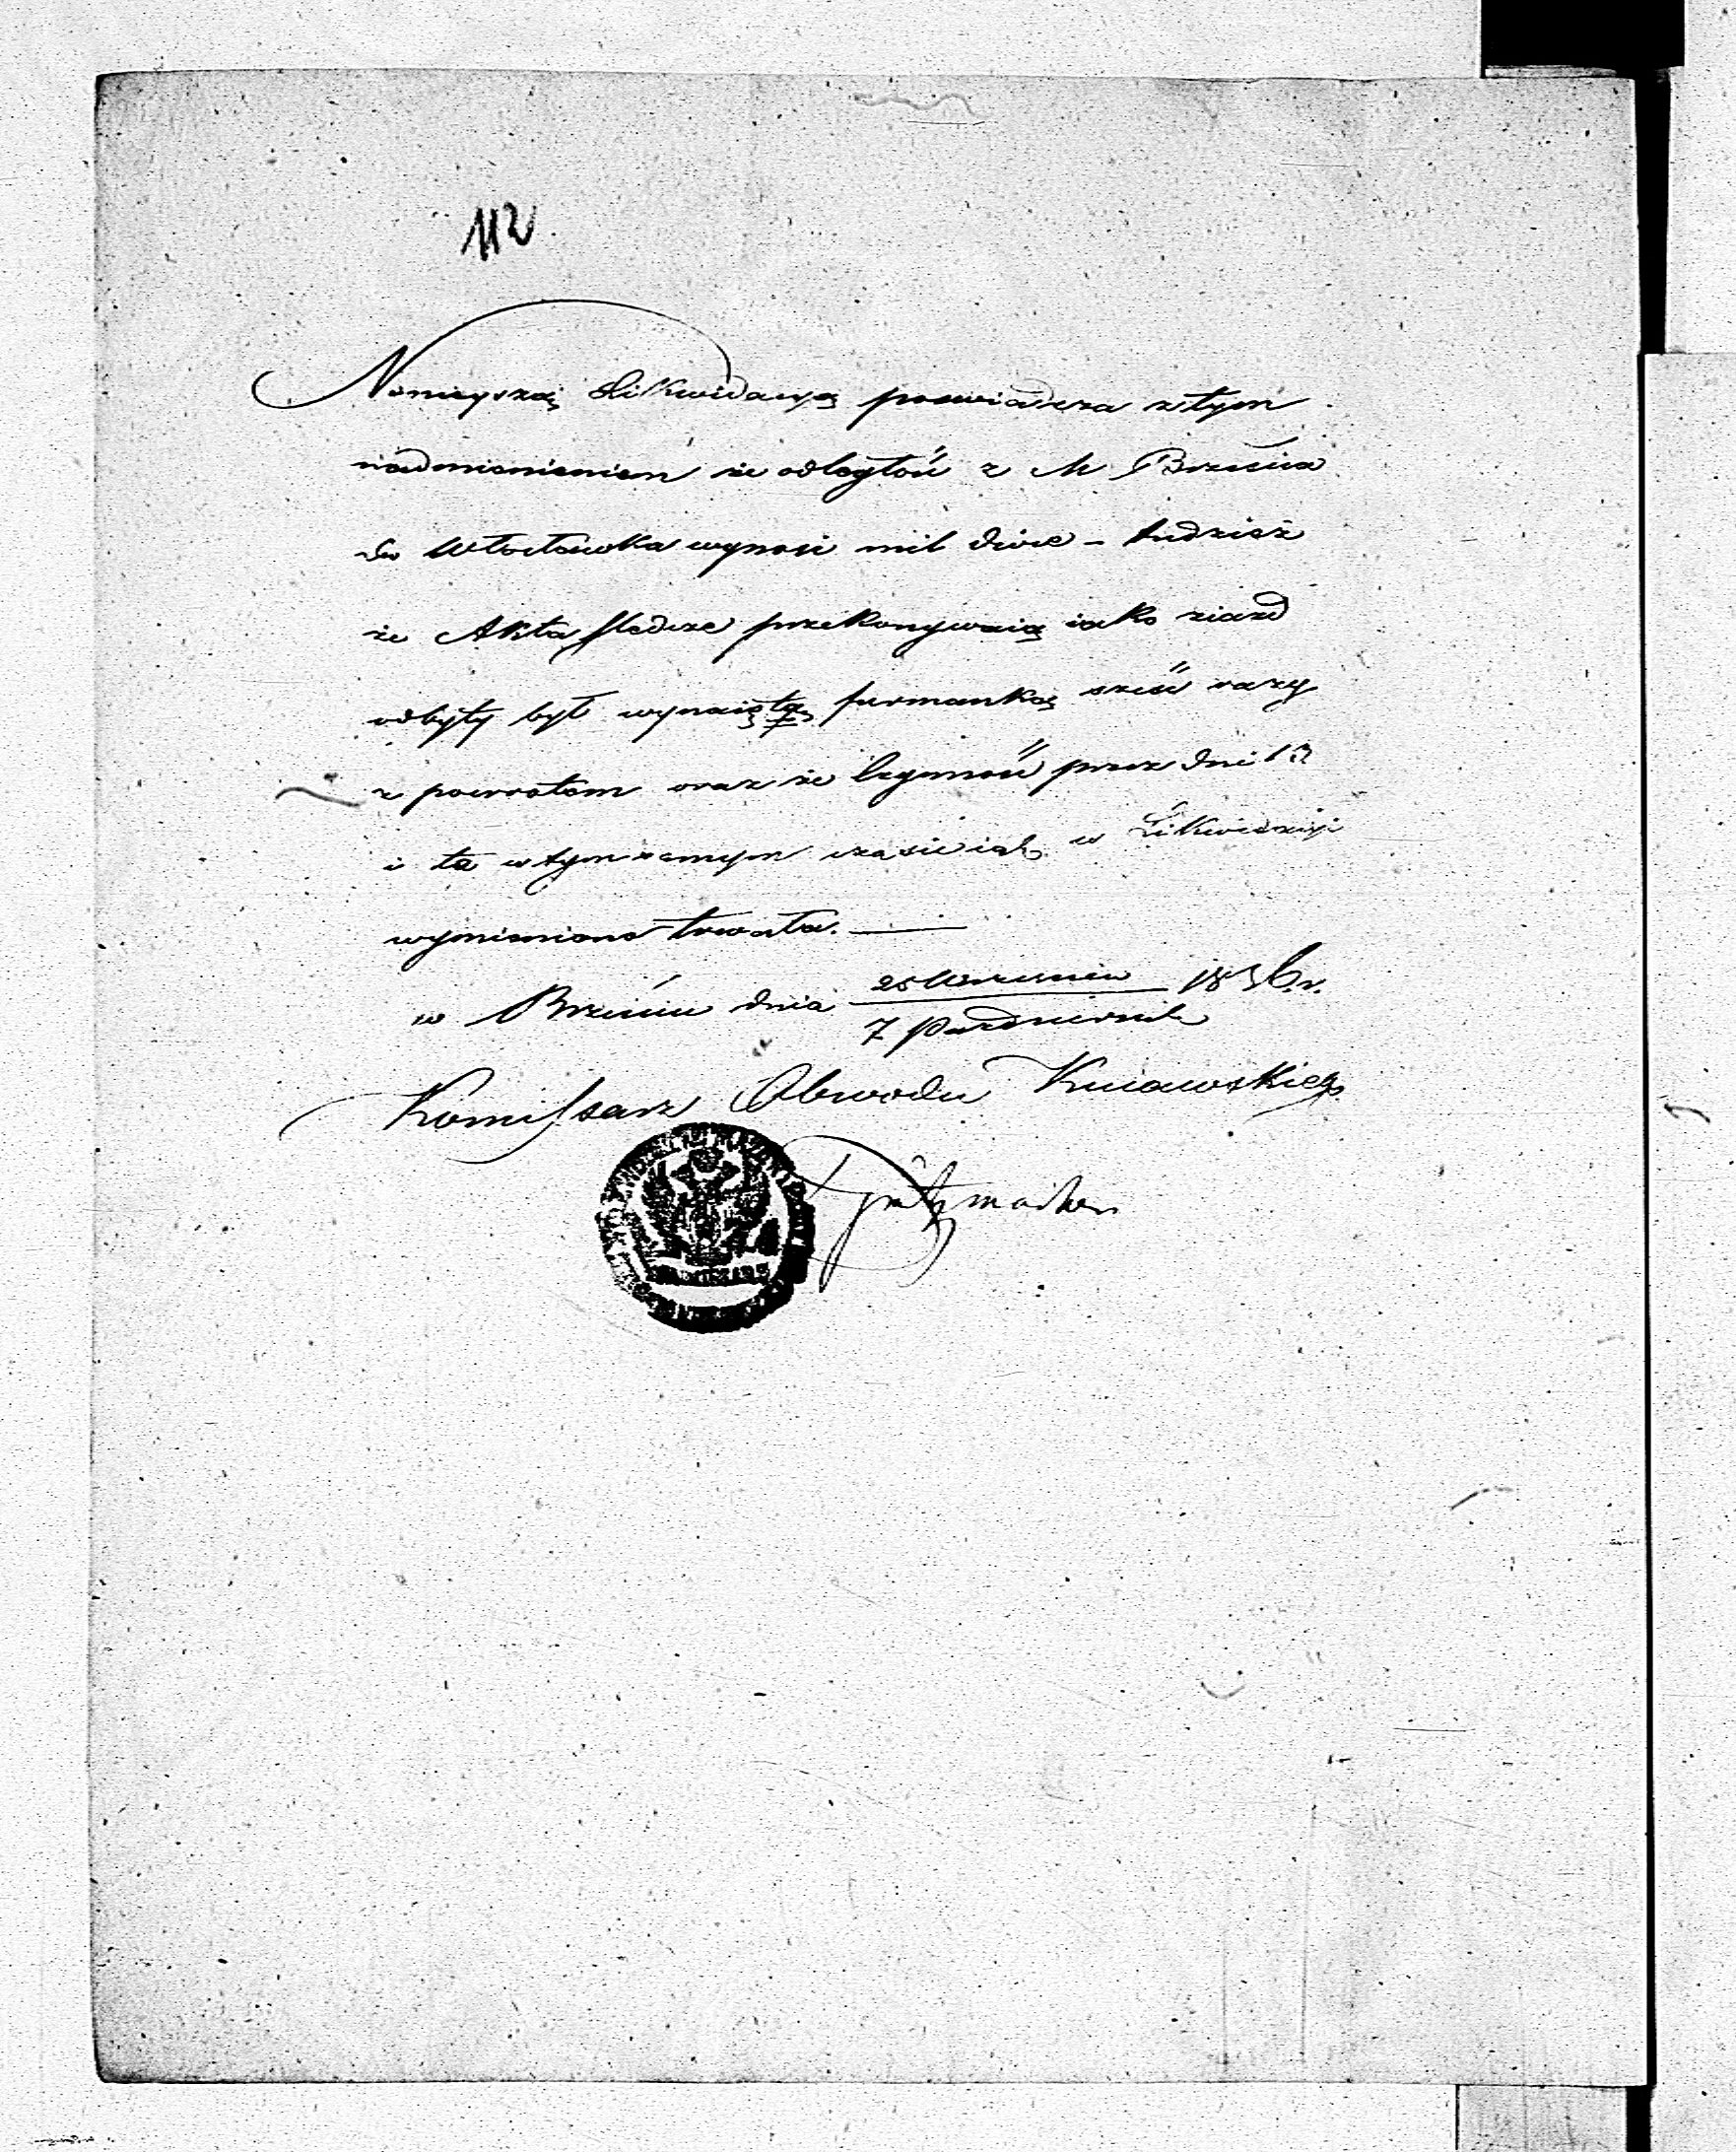 112
Ninieyszą Likwidacyą poswiadcza z tym
nadmienieniem że odległość z M Brześcia
do Włocławka wynosi mil dwie – tudzież
że Akta śledcze przekonywaią iako ziazd
odbyty był wynaiętą furmanką sześć razy
z powrotem oraz że czynność przez dni 13
i ta w tym samym czasie iak w Likwidacyi
wymieniono trwała.
w Brześciu dnia 25 Września / 7 Października 1836 r.
Kommissarz Obwodu Kuiawskiego